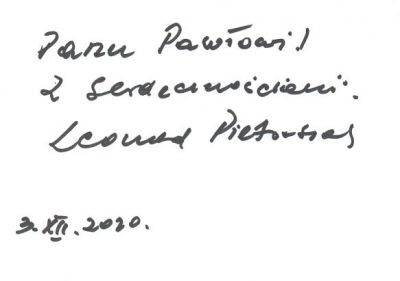 Panu Pawłowi!
Z serdecznościami.
Leonard Pietraszak
3.XII.2020.